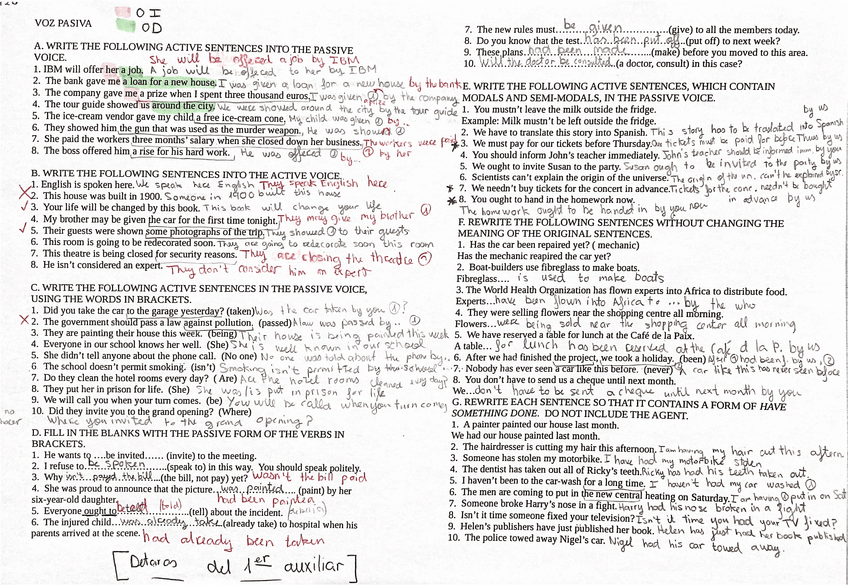 O I
VOZ PASIVA
O D
A. WRITE THE FOLLOWING ACTIVE SENTENCES INTO THE PASSIVE
VOICE. She will be offered a job by IBM
1. IBM will offer her a job. A job will be offered to her by IBM
2. The bank gave me a loan for a new house. I was given a loan for a new house by the bank
3. The company gave me a prize when I spent three thousand euros. I was given by the company
4. The tour guide showed us around the city. We were showed around the city by the tour guide
5. The ice-cream vendor gave my child a free ice-cream cone. My child was given by...
6. They showed him the gun that was used as the murder weapon. He was showed
7. She paid the workers three months' salary when she closed down her business. The workers were paid
8. The boss offered him a rise for his hard work. He was offered by... by her
B. WRITE THE FOLLOWING SENTENCES INTO THE ACTIVE VOICE.
1. English is spoken here. We speak here English They speak English here.
2. This house was built in 1900. Someone in 1900 built this house
3. Your life will be changed by this book. This book will change your life
4. My brother may be given the car for the first time tonight. They may give my brother
5. Their guests were shown some photographs of the trip. They showed to their guests
6. This room is going to be redecorated soon. They are going to redecorate soon this room
7. This theatre is being closed for security reasons. They are closing the theatre
8. He isn't considered an expert. They don't consider him an expert
C. WRITE THE FOLLOWING ACTIVE SENTENCES IN THE PASSIVE VOICE,
USING THE WORDS IN BRACKETS.
1. Did you take the car to the garage yesterday? (taken) Was the car taken by you ?
2. The government should pass a law against pollution. (passed) A law was passed by...
3. They are painting their house this week. (being) Their house is being painted this week
4. Everyone in our school knows her well. (She) She is well known in our school
5. She didn't tell anyone about the phone call. (No one) No one was told about the phone by...
6. The school doesn't permit smoking. (isn't) Smoking isn't permitted by the school...
7. Do they clean the hotel rooms every day? (Are) Are the hotel rooms cleaned every day?
8. They put her in prison for life. (She) She was/is put in prison for life
9. We will call you when your turn comes. (be) You will be called when your turn comes
10. Did they invite you to the grand opening? (Where)
Where you invited to the grand opening?
D. FILL IN THE BLANKS WITH THE PASSIVE FORM OF THE VERBS IN
BRACKETS.
1. He wants to ....be invited...... (invite) to the meeting.
2. I refuse to be spoken (speak to) in this way. You should speak politely.
3. Why isn't payed the bill (the bill, not pay) yet? Wasn't the bill paid
4. She was proud to announce that the picture...was painted...(paint) by her
six-year-old daughter. had been painted
5. Everyone ought to (tell) about the incident.
6. The injured child...was already take...(already take) to hospital when his
parents arrived at the scene. had already been taken
[Detras del 1er auxiliar]
7. The new rules must be given (give) to all the members today.
8. Do you know that the test has been put off (put off) to next week?
9. These plans had been made (make) before you moved to this area.
10. Will the doctor be consulted (a doctor, consult) in this case?
E. WRITE THE FOLLOWING ACTIVE SENTENCES, WHICH CONTAIN
MODALS AND SEMI-MODALS, IN THE PASSIVE VOICE.
1. You mustn't leave the milk outside the fridge.
Example: Milk mustn't be left outside the fridge. by us
2. We have to translate this story into Spanish. This story has to be traslated into Spanish
3. We must pay for our tickets before Thursday. Our tickets must be paid for before Thurs by us
4. You should inform John's teacher immediately. John's teacher should be informed inm by you
5. We ought to invite Susan to the party. Susan ought to be invited to the party by us
6. Scientists can't explain the origin of the universe. The origin of the un. can't be explained by sc.
7. We needn't buy tickets for the concert in advance. Tickets for the conc. needn't be bought
8. You ought to hand in the homework now. in advance by us
The homework ought to be handed in by you now
F. REWRITE THE FOLLOWING SENTENCES WITHOUT CHANGING THE
MEANING OF THE ORIGINAL SENTENCES.
1. Has the car been repaired yet? ( mechanic)
Has the mechanic repaired the car yet?
2. Boat-builders use fibreglass to make boats.
Fibreglass.... is used to make boats
3. The World Health Organization has flown experts into Africa to distribute food.
Experts...have been flown into Africa to ... by the who
4. They were selling flowers near the shopping centre all morning.
Flowers...were being sold near the shopping center all morning
5. We have reserved a table for lunch at the Café de la Paix.
A table...for lunch has been reserved at the Café d la P. by us
6. After we had finished the project, we took a holiday. (been) After had been f. by us,
7. Nobody has ever seen a car like this before. (never) A car like this has never seen before
8. You don't have to send us a cheque until next month.
We...don't have to be sent a cheque until next month by you
G. REWRITE EACH SENTENCE SO THAT IT CONTAINS A FORM OF HAVE
SOMETHING DONE. DO NOT INCLUDE THE AGENT.
1. A painter painted our house last month.
We had our house painted last month.
2. The hairdresser is cutting my hair this afternoon. I am having my hair cut this aftern
3. Someone has stolen my motorbike. I have had my motorbike stolen
4. The dentist has taken out all of Ricky's teeth. Ricky has had his teeth taken out
5. I haven't been to the car-wash for a long time. I haven't had my car washed
6. The men are coming to put in the new central heating on Saturday. I am having put in on Sat
7. Someone broke Harry's nose in a fight. Harry had his nose broken in a fight
8. Isn't it time someone fixed your television? Isn't it time you had your TV fixed?
9. Helen's publishers have just published her book. Helen has just had her book published
10. The police towed away Nigel's car. Nigel had his car towed away.